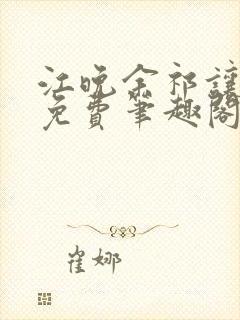 江晚余祁让
免费笔趣阁
崔娜